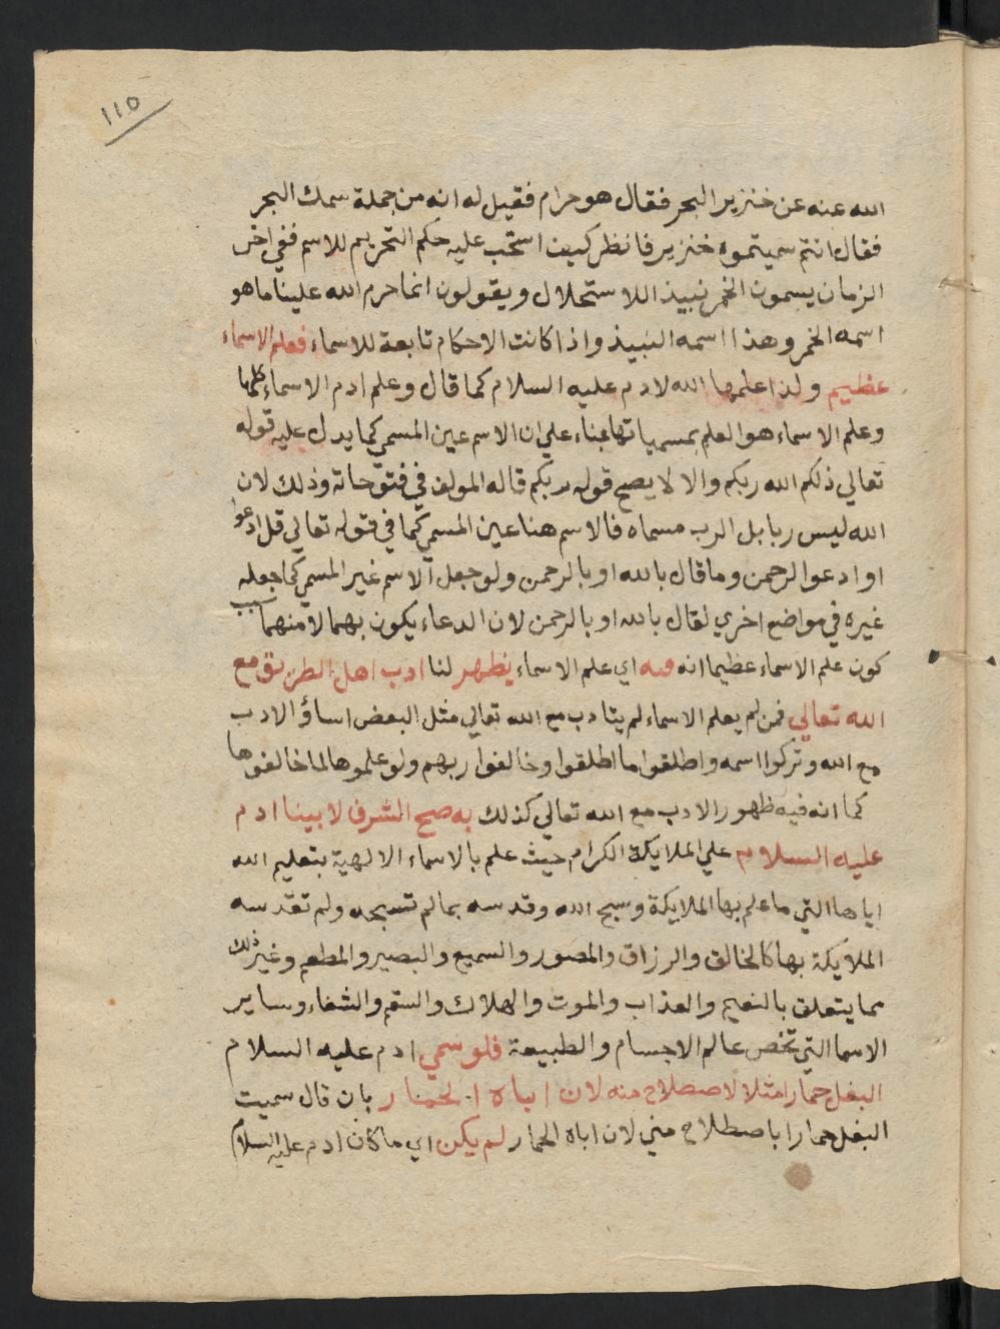 ١١٥
الله عنه عن خنزير البحر فقال هو حرام فقيل له انه من جملة سمك البحر
فقال انتم سميتموه خنزير فانظر كيف استحب عليه حكم التحريم للاسم ففي اخر
الزمان يسمون الخمر نبيذ اللاستحلال ويقولون انما حرم الله علينا ما هو
اسمه الخمر وهذا اسمه النبيذ واذا كانت الاحكام تابعة للاسماء فعلم الاسماء
عظيم ولذا علمها الله لادم عليه السلام كما قال وعلم ادم الاسماء كلها
وعلم الاسماء هو العلم بمسمياتها بناء علي ان الاسم عين المسمي كما يدل عليه قوله
تعالي ذلكم الله ربكم والا لا يصح قوله ربكم قاله المولف في فتوحاته وذلك لان
الله ليس ربا بل الرب مسماه فالاسم هنا عين المسمي كما في قوله تعالي قل ادعوا
او ادعوا الرحمن وما قال بالله او بالرحمن ولو جعل الاسم غير المسمي كما جعله
غيره في مواضع اخري لقال بالله او بالرحمن لان الدعاء يكون بهما لا منهما سبب
كون علم الاسماء عظيما انه فيه اي علم الاسماء يظهر لنا ادب اهل الطريق مع
الله تعالي فمن لم يعلم الاسماء لم يتادب مع الله تعالي مثل البعض اساؤ الادب
مع الله وتركوا اسمه واطلقوا ما اطلقوا وخالفوا ربهم ولو علموها لما خالفوها
كما انه فيه ظهور الادب مع الله تعالي كذلك به صح الشرف لابينا ادم
عليه السلام علي الملايكة الكرام حيث علم بالاسماء الالهية بتعليم الله
اياها التي ما علم بها الملايكة وسبح الله وقدسه بما لم تسبحه ولم تقدسه
الملايكة بها كالخالق والرزاق والمصور والسميع والبصير والمطعم وغير ذلك
مما يتعلق بالنعيم والعذاب والموت والهلاك والسقم والشفاء وساير
الاسما التي تخص عالم الاجسام والطبيعة فلو سمي ادم عليه السلام
البغل حمارا مثلا لاصطلاح منه لان اباه الحمار بان قال سميت
البغل حمارا باصطلاح مني لان اباه الحمار لم يكن اي ما كان ادم عليه السلام